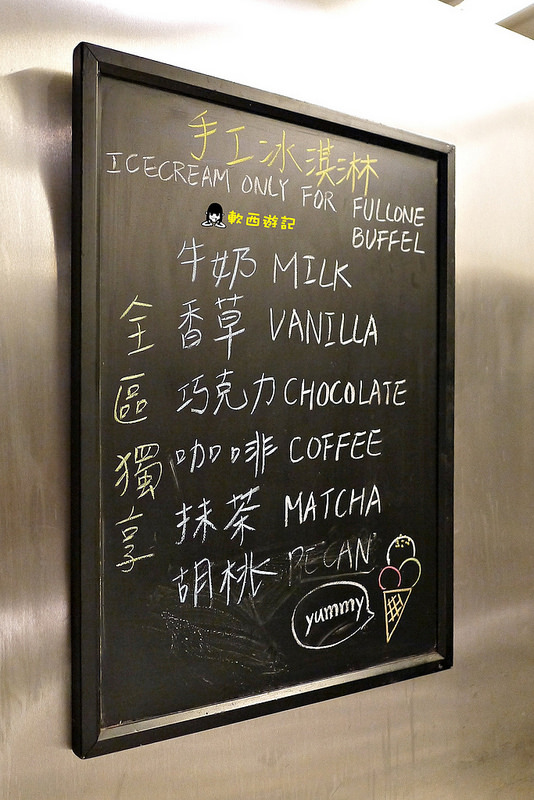 手工冰淇淋
ICECREAM ONLY FOR FULLONE
BUFFEL
軟西遊記
牛奶 MILK
香草 VANILLA
巧克力 CHOCOLATE
咖啡 COFFEE
抹茶 MATCHA
胡桃 PECAN
全區獨享
yummy